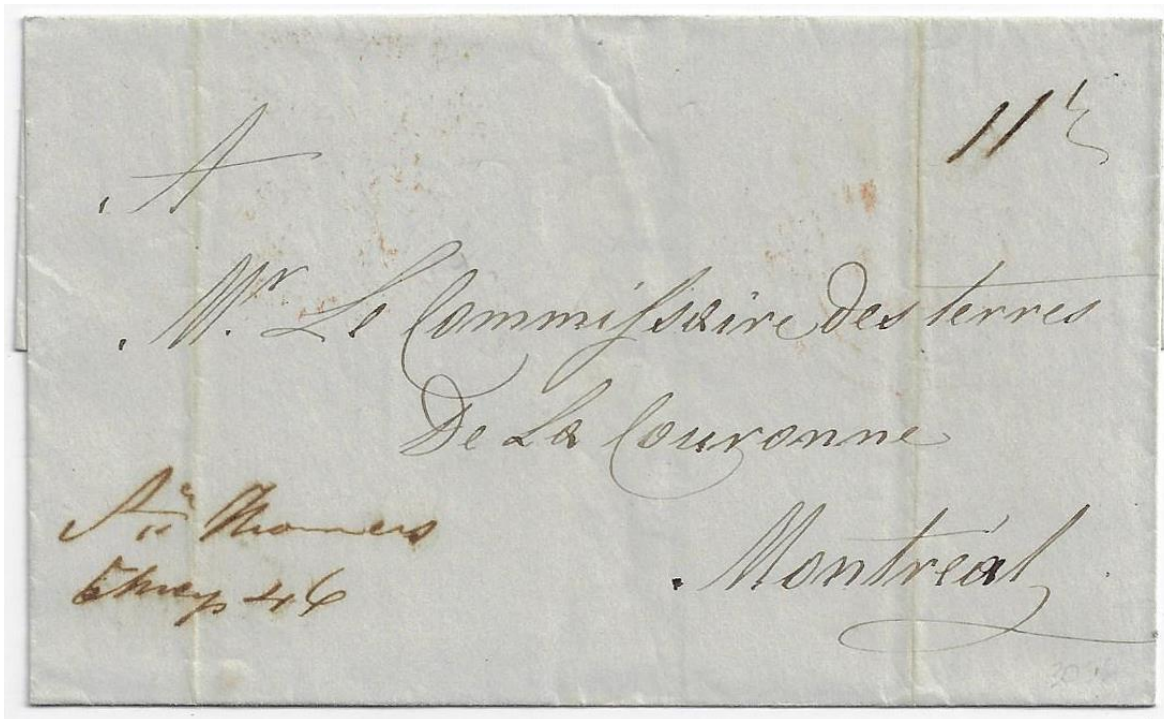 11½
A
Mr. Le Commissaire Des terres
De La Couronne
Montréal
St Thomas
6 May 46